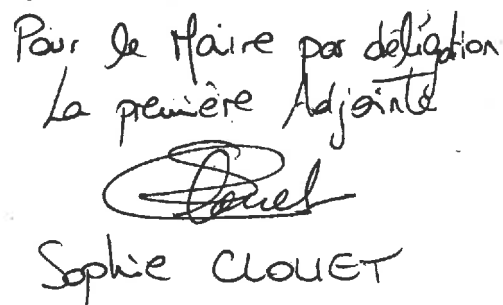 Pour le Maire par délégation
La première Adjointe
Clouet
Sophie CLOUET